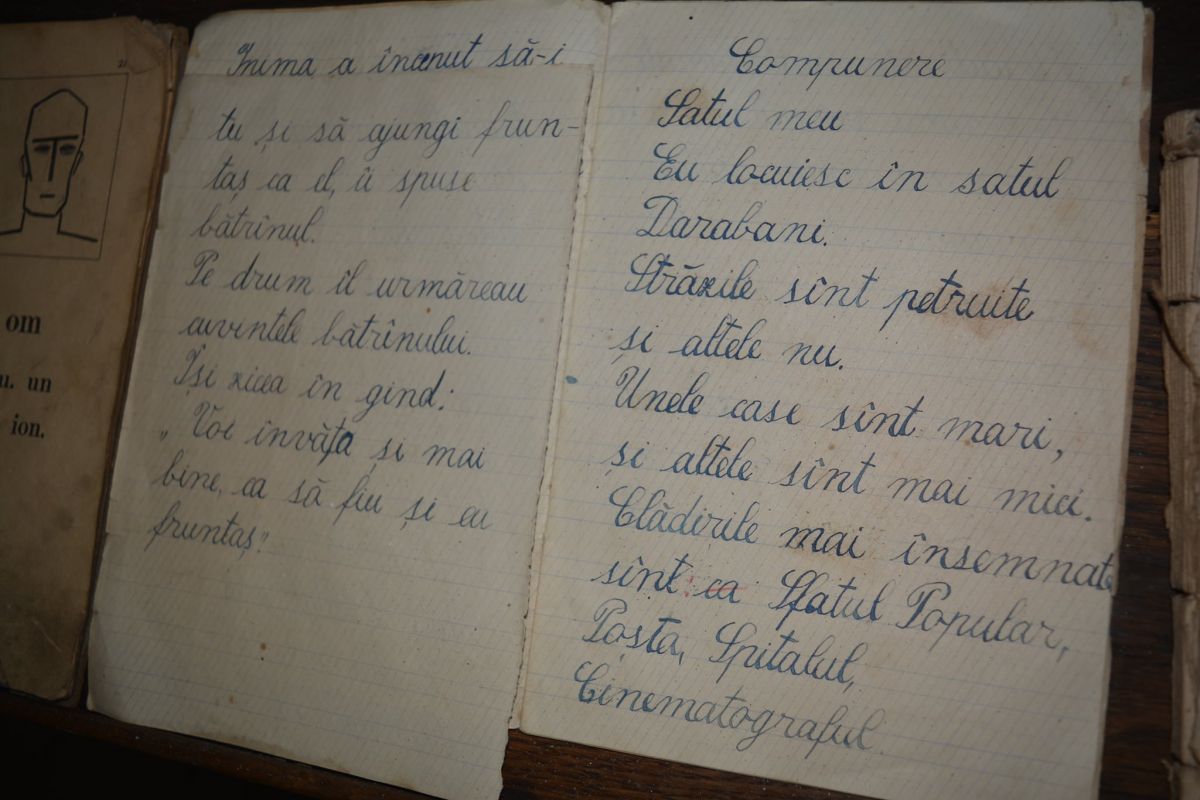 21
om
u. un
ion.
Inima a încenut să-i
tu și să ajungi frun-
taș ca el, îi spuse
bătrînul.
Pe drum îl urmăreau
cuvintele bătrînului.
Își zicea în gind:
„Voi învăța și mai
bine, ca să fiu și eu
fruntaș."
Compunere
Satul meu
Eu locuiesc în satul
Darabani.
Străzile sînt petruite
și altele nu.
Unele case sînt mari,
și altele sînt mai mici.
Clădirile mai însemnate
sînt: ca Sfatul Popular,
Poșta, Spitalul,
Cinematograful.